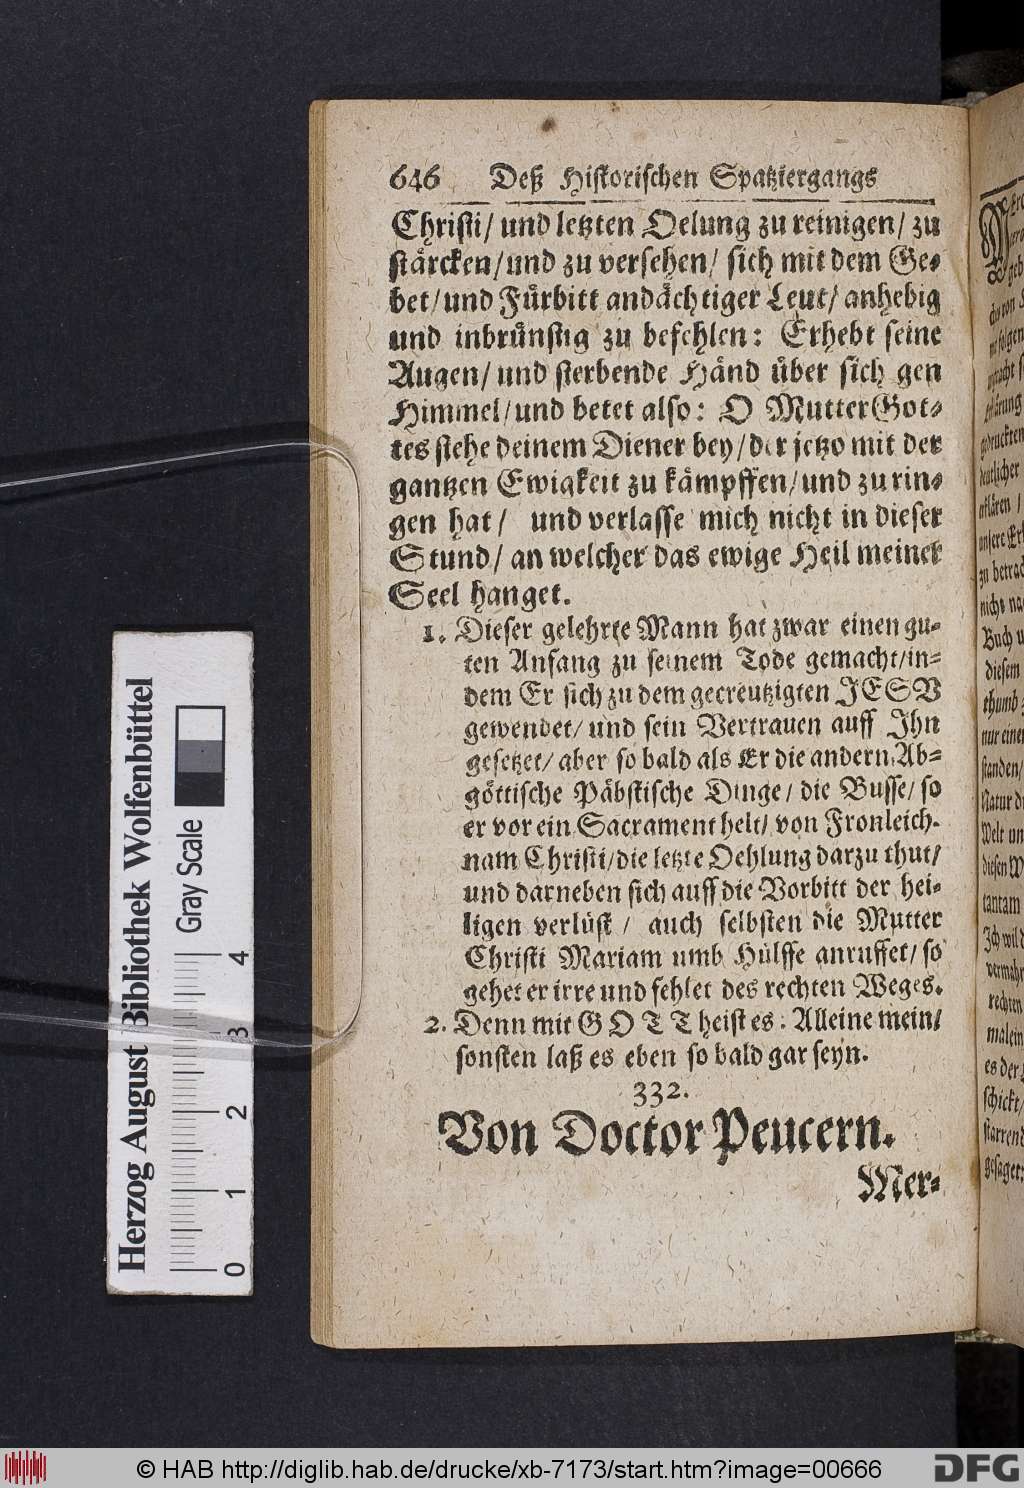 646 Deß Historischen Spatziergangs
Christi/ und letzten Oelung zu reinigen/ zu
stärcken/ und zu versehen/ sich mit dem Ge-
bet/ und Fürbitt andächtiger Leut/ anhebig
und inbrünstig zu befehlen: Erhebt seine
Augen/ und sterbende Händ über sich gen
Himmel/ und betet also: O Mutter Got-
tes stehe deinem Diener bey/ der jetzo mit der
gantzen Ewigkeit zu kämpffen/ und zu rin-
gen hat/ und verlasse mich nicht in dieser
Stund/ an welcher das ewige Heil meiner
Seel hanget.
1. Dieser gelehrte Mann hat zwar einen gu-
ten Anfang zu seinem Tode gemacht/ in-
dem Er sich zu dem gecreutzigten JESV
gewendet/ und sein Vertrauen auff Ihn
gesetzet/ aber so bald als Er die andern Ab-
göttische Päbstische Dinge/ die Busse/ so
er vor ein Sacrament helt/ von Fronleich-
nam Christi/ die letzte Oehlung darzu thut/
und darneben sich auff die Vorbitt der hei-
ligen verlüst/ auch selbsten die Mutter
Christi Mariam umb Hülffe anruffet/ so
gehet er irre und fehlet des rechten Weges.
2. Denn mit GOTT heist es: Alleine mein/
sonsten laß es eben so bald gar seyn.
332.
Von Doctor Peucern.
Mer-
Herzog August Bibliothek Wolfenbüttel
Gray Scale
0 1 2 3 4
© HAB http://diglib.hab.de/drucke/xb-7173/start.htm?image=00666
DFG